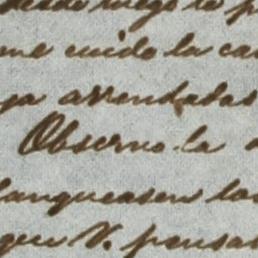 desde luego le p
me cuido la ca
ya arrendadas
Observo la
langueasen la
que V. pensa